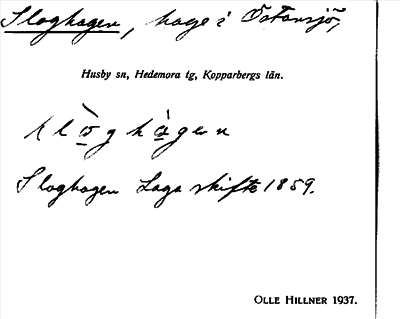 Sloghagen, hage i Östansjö,
Husby sn, Hedemora tg, Kopparbergs län.
Sloghagen Laga skifte 1859.
OLLE HILLNER 1937.